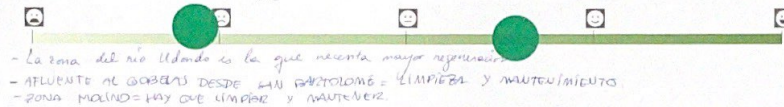 - La zona del río Udondo es la que necesita mayor regeneración
- AFLUENTE AL GOBELAS DESDE SAN BARTOLOME = LIMPIEZA Y MANTENIMIENTO.
- ZONA MOLINO = HAY QUE LIMPIAR Y MANTENER.